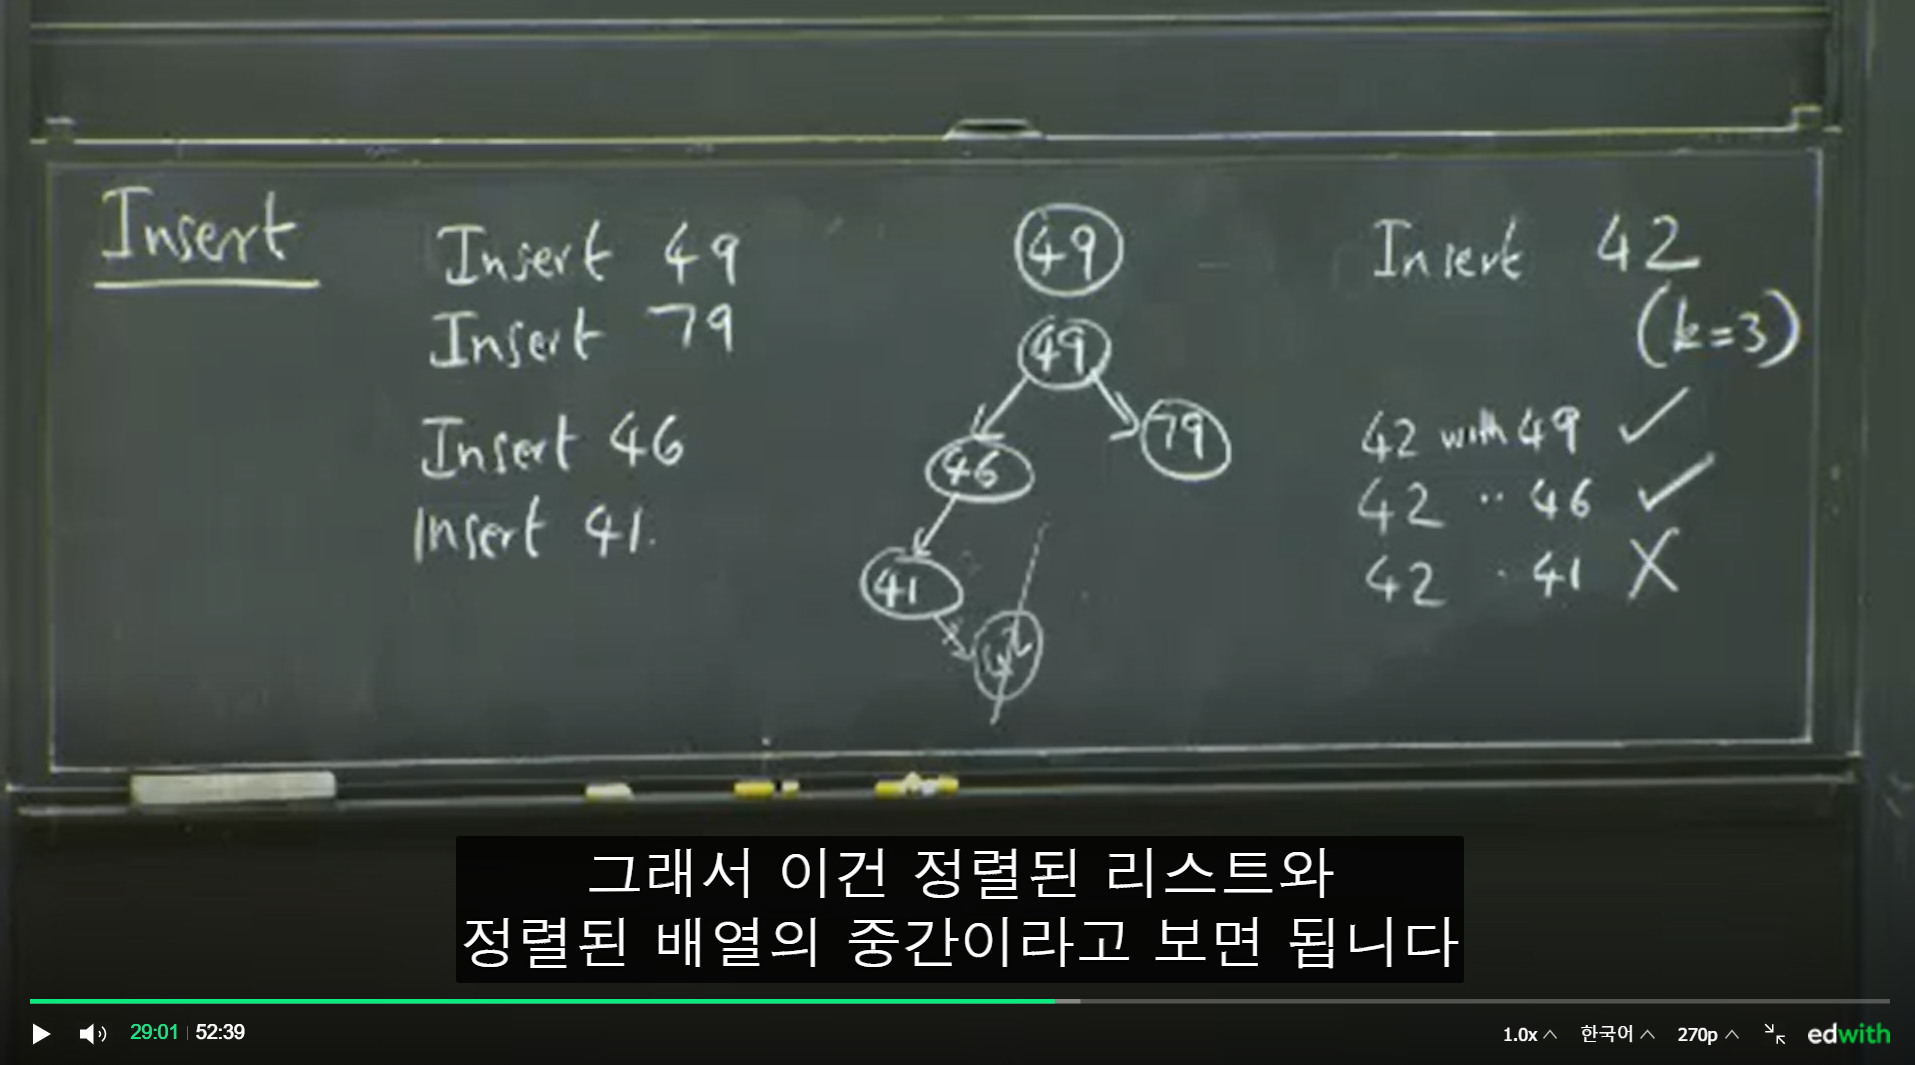 Insert
Insert 49
Insert 79
Insert 46
Insert 41.
49
49
46
79
41
Insert 42
(k=3)
42 with 49 ✓
42 " 46 ✓
42 . 41 X
그래서 이건 정렬된 리스트와
정렬된 배열의 중간이라고 보면 됩니다
29:01 | 52:39
1.0x
한국어
270p
edwith